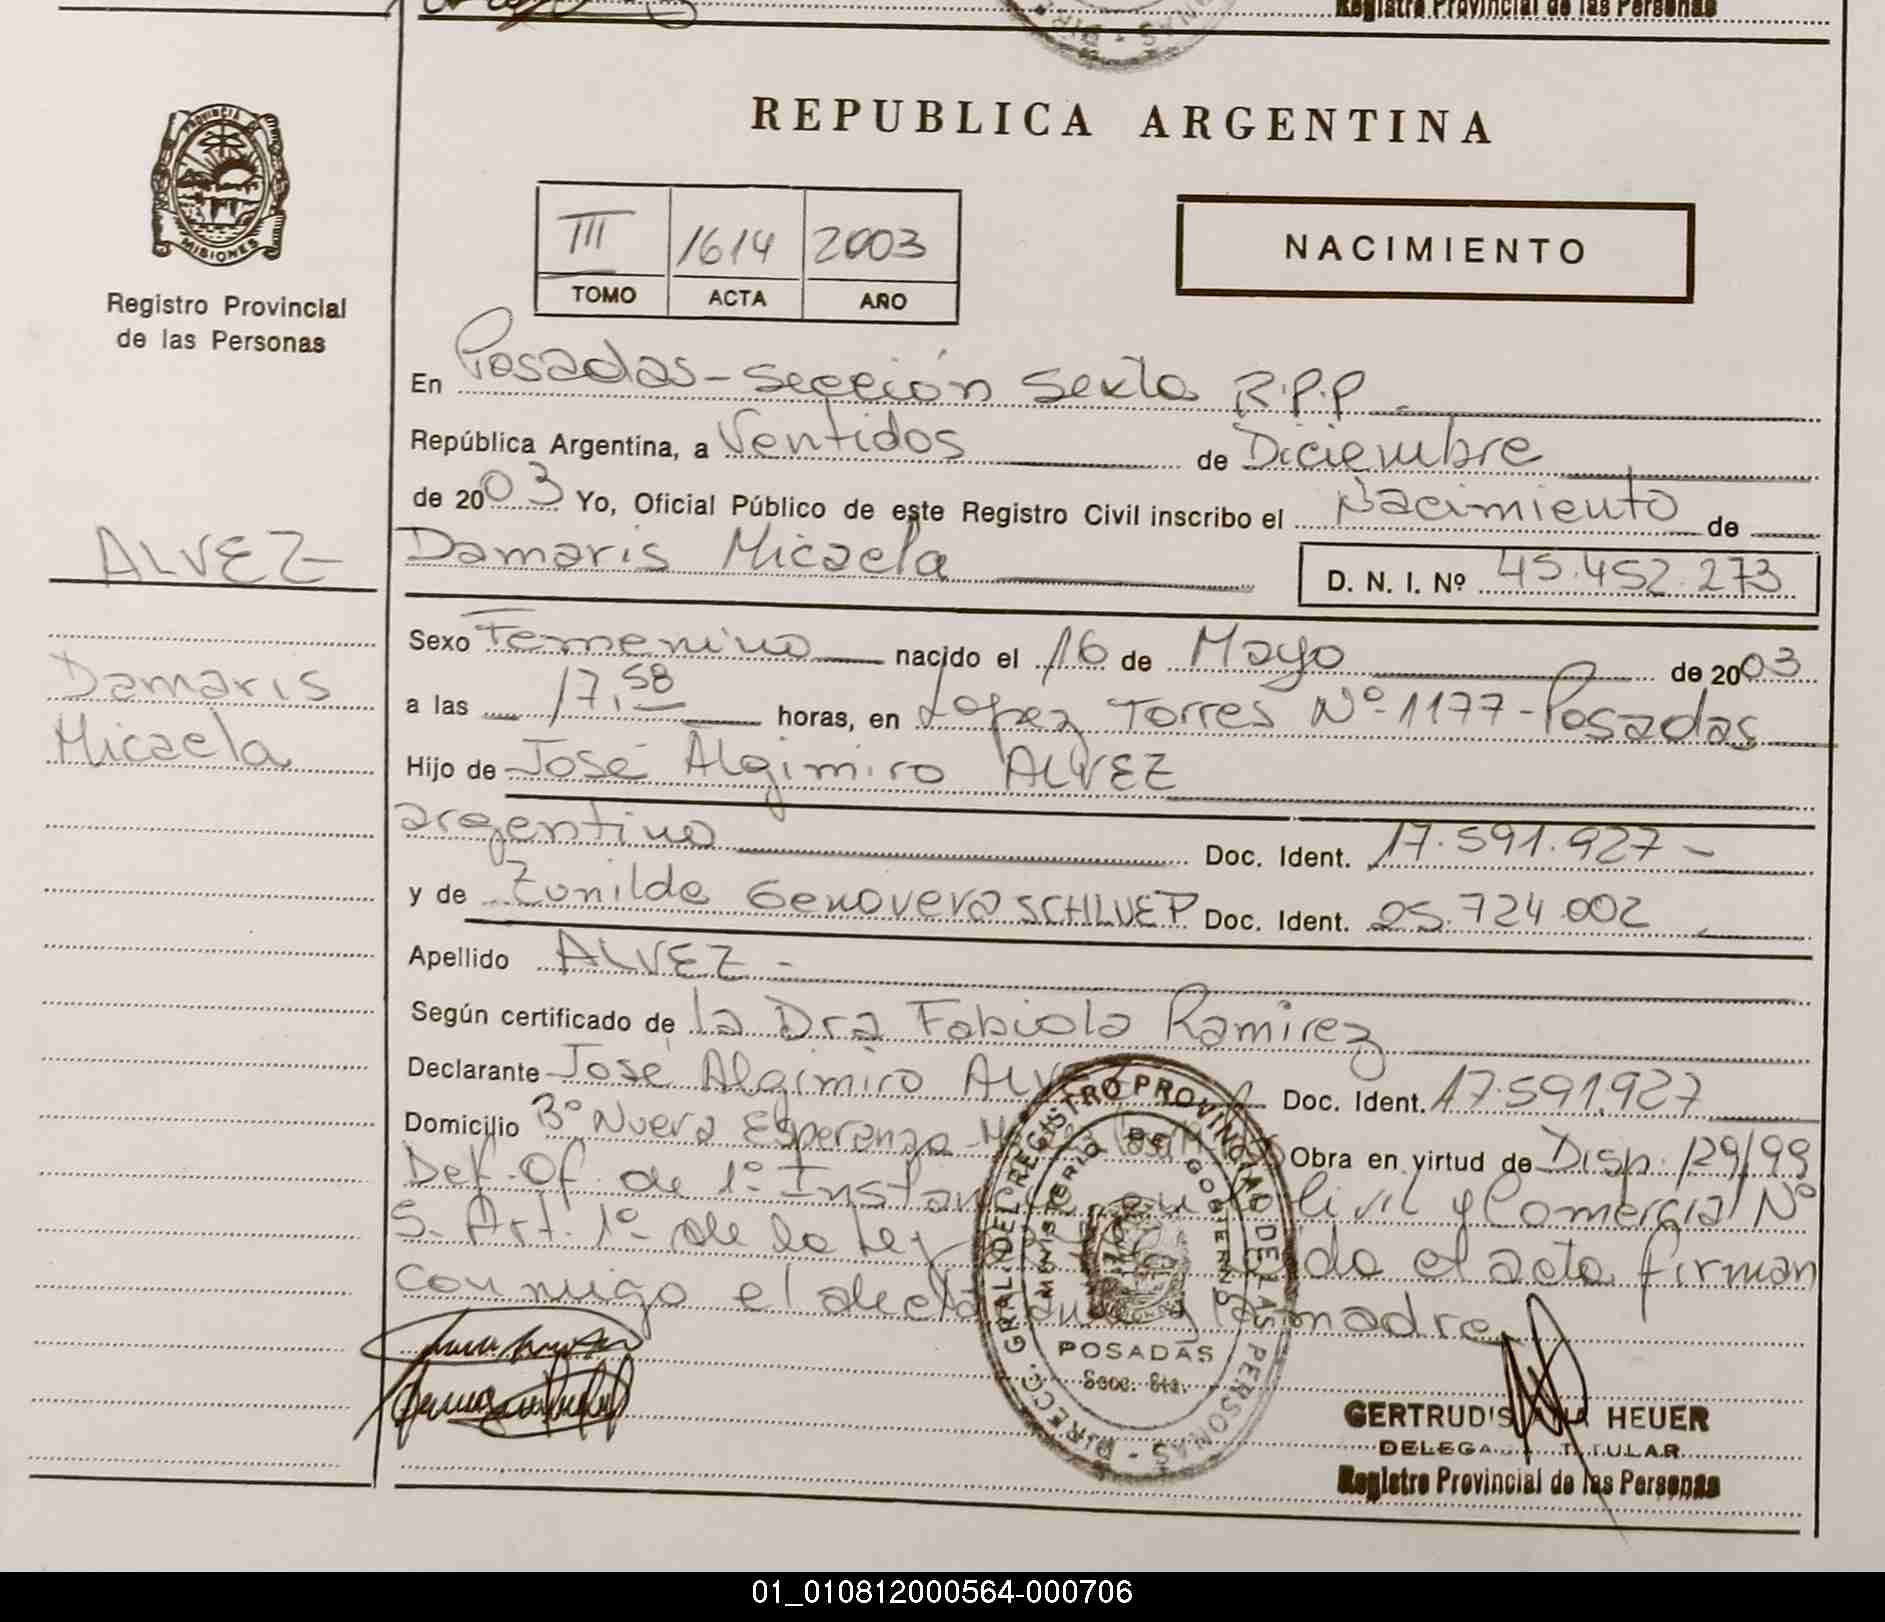 Registro Provincial de las Personas
PROVINCIA DE
MISIONES
Registro Provincial
de las Personas
REPUBLICA ARGENTINA
III 1614 2003
TOMO ACTA AÑO
NACIMIENTO
En Posadas - Sección Sexta R.P.P
República Argentina, a Ventidos de Diciembre
de 2003 Yo, Oficial Público de este Registro Civil inscribo el Nacimiento de
ALVEZ
Damaris Micaela D. N. I. Nº 45.452.273
Sexo Femenino nacido el 16 de Mayo de 2003
Damaris
Micaela
a las 17,58 horas, en Lopez Torres Nº 1177 - Posadas
Hijo de José Algimiro ALVEZ
argentino Doc. Ident. 17.591.927 -
y de Zunilda Genoveva SCHLUEP Doc. Ident. 25.724.002
Apellido ALVEZ -
Según certificado de la Dra Fabiola Ramirez
Declarante José Algimiro Doc. Ident. 17.591.927
Domicilio Bº Nueva Esperanza Obra en virtud de Disp. 129/99
Def. Of. de 1º Civil y Comercial Nº
5. Art. 1º de la Ley el acta firman
conmigo el la madre
DIRECC. GRAL. DEL REGISTRO PROVINCIAL DE LAS PERSONAS
MINISTERIO DE GOBIERNO
POSADAS
Secc. 6ta.
GERTRUDIS HEUER
TITULAR
Registro Provincial de las Personas
01_010812000564-000706